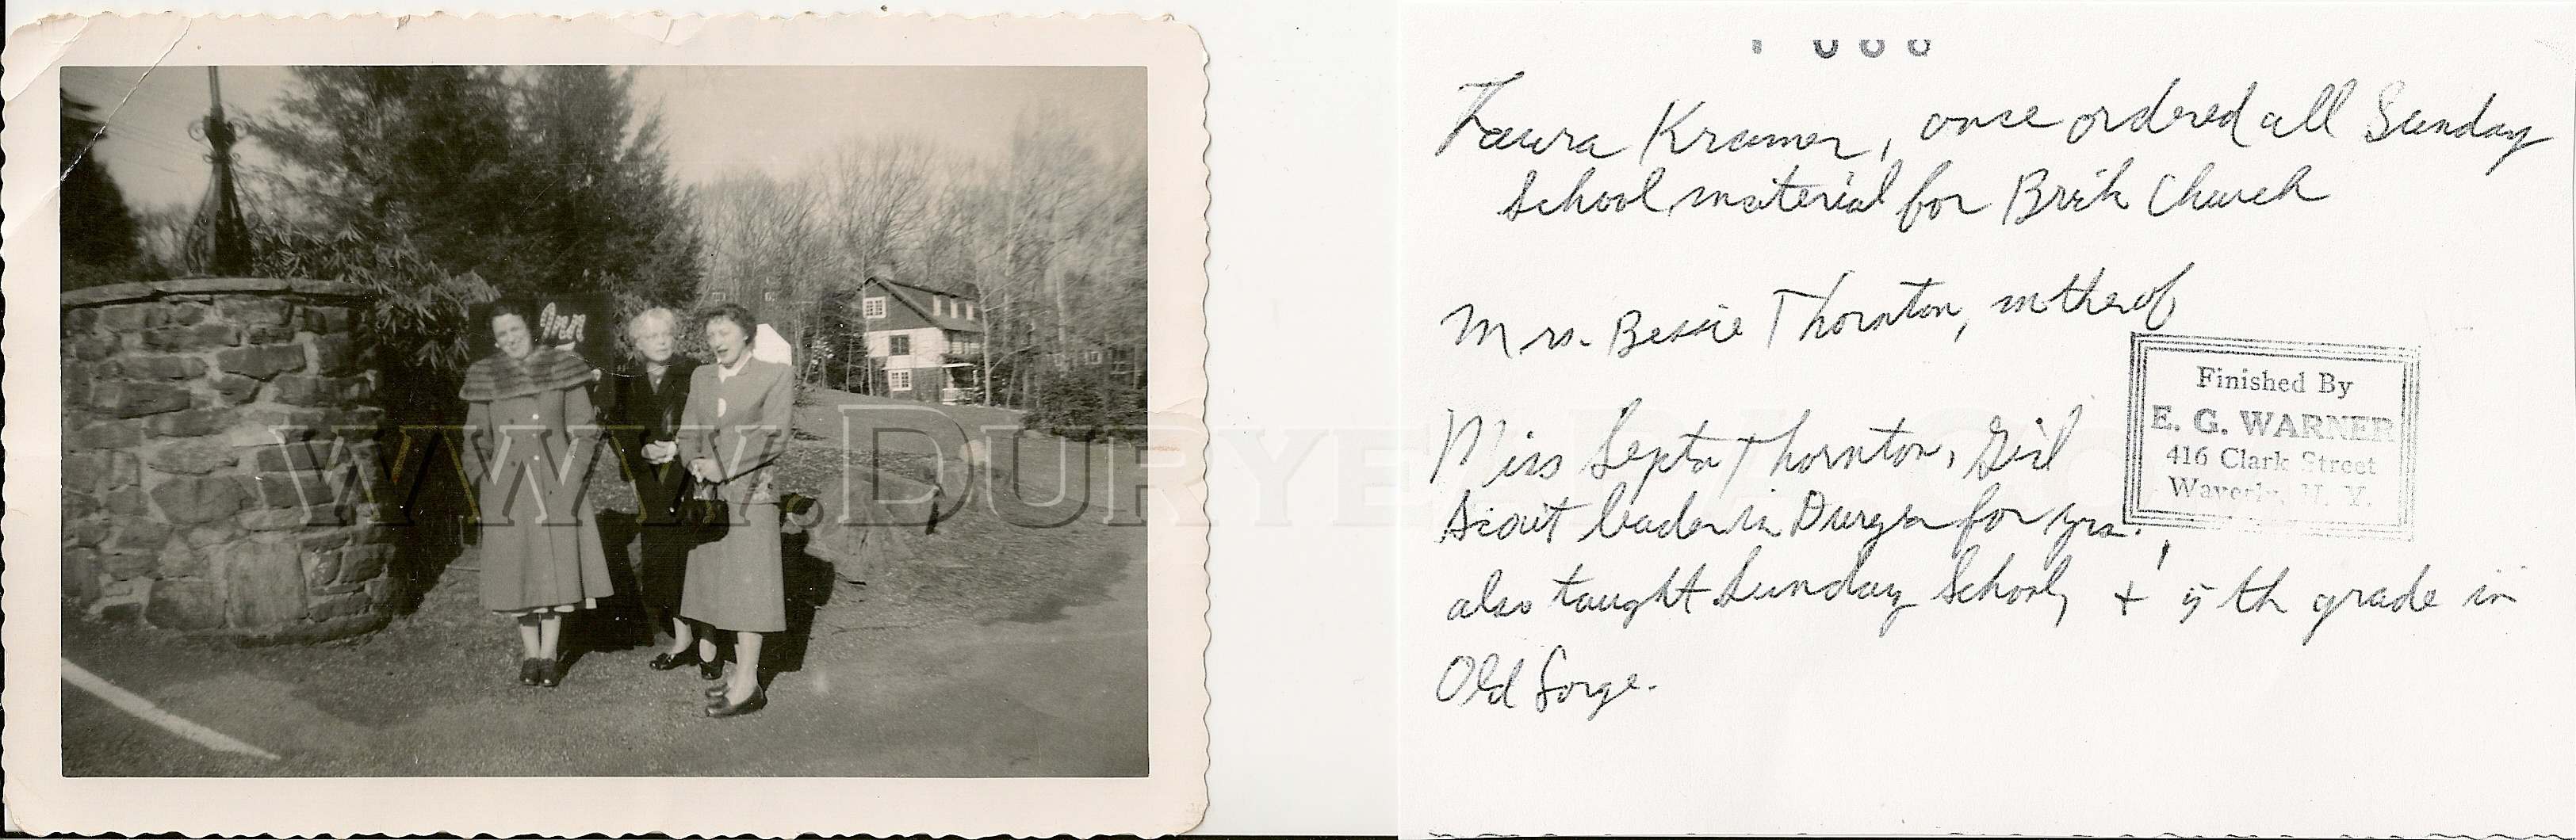 Inn
www.Durye
Laura Kramer, once ordered all Sunday
School material for Brick Church
Mrs. Bessie Thornton, mother of
Miss Septa Thornton, Girl
Scout leader in Duryea for yrs.
also taught Sunday School, + 5th grade in
Old Forge.
Finished By
E. G. WARNER
416 Clark Street
Waverly, N. Y.